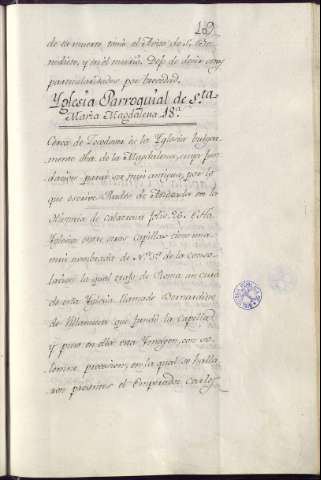 169
de su muerte, tenia el Avito de S. Be
nedicto, y en el murio. Dejo de decir otras
particularidades por brevedad.
Yglesia Parroquial de S.ta
Maria Magdalena. 18.a
Cerca de Zocodover es la Yglesia bulgar
mente dha. de la Magdalena, cuya fun
dacion parece ser mui antigua, por lo
que escrive Rades de Andrada en la
Historia de calatrava folio 26. Esta
Yglesia entre otras capillas tiene una
mui nombrada de N.ª S.ª de la conso
lacion la qual trajo de Roma un cura
de esta Yglesia llamado Bernardino
de que fundó la capilla
y puso en ella esta Ymagen, con so
lemne procesion, en la qual se halla
ron presentes el Emperador Carlos